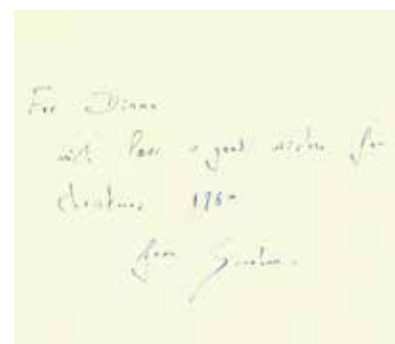 For Diana
with love & good wishes for
Christmas 196
from Graham.